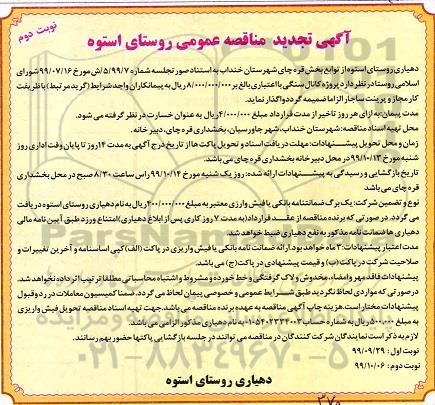 نوبت دوم
آگهی تجدید مناقصه عمومی روستای استوه
دهیاری روستای استوه از توابع بخش قره چای شهرستان خنداب به استناد صورتجلسه شماره ۵/۹۹/۷/ش مورخ ۹۹/۰۷/۱۶ شورای
اسلامی روستا در نظر دارد پروژه کانال سنگی با اعتباری بالغ بر ۸/۰۰۰/۰۰۰/۰۰۰ ریال به پیمانکاران واجد شرایط (گرید مرتبط) با ظریفت
کار مجاز و پرینت ساجار الزاما ضمیمه گردد واگذار نماید.
مدت پیمان: به ازای هر روز تاخیر از مدت قرارداد مبلغ ۴/۰۰۰/۰۰۰ ریال به عنوان خسارت در نظر گرفته می شود.
محل تهیه اسناد مناقصه: شهرستان خنداب، شهر جاورسیان، بخشداری قره چای، دبیرخانه.
زمان و محل تحویل پیشنهادات: مهلت دریافت اسناد و تحویل پاکت ها از تاریخ درج آگهی به مدت ۱۴ روز تا پایان وقت اداری روز
شنبه مورخ ۹۹/۱۰/۱۳ در محل دبیرخانه بخشداری قره چای می باشد.
تاریخ بازگشایی و رسیدگی به پیشنهادات ارائه شده: روز یک شنبه مورخ ۹۹/۱۰/۱۴ راس ساعت ۸/۳۰ صبح در محل بخشداری
قره چای می باشد.
نوع و تضمین شرکت: یک برگ ضمانتنامه بانکی یا فیش واریزی معتبر به مبلغ ۴۰۰/۰۰۰/۰۰۰ ریال به نام دهیاری روستای استوه دریافت
می گردد. در صورتی که برنده مناقصه از عقد قرارداد (به مدت ۷ روز کاری پس از ابلاغ دهیاری) امتناع ورزد طبق آیین نامه مالی
دهیاری ها ضمانت نامه مذکور به نفع دهیاری ضبط خواهد شد.
مدت اعتبار پیشنهادات: ۳ ماه خواهد بود. ارائه ضمانت نامه بانکی یا فیش واریزی در پاکت (الف) کپی اساسنامه و آخرین تغییرات و
صلاحیت شرکت در پاکت (ب) و قیمت پیشنهادی در پاکت (ج) می باشد.
پیشنهادات فاقد مهر و امضاء، مخدوش و لاک گرفتگی و خط خورده و مشروط و اشتباه محاسباتی مطلقا ترتیب اثر داده نخواهد شد.
در صورتی که مواردی لحاظ نگردید طبق شرایط عمومی و خصوصی پیمان لحاظ می گردد. ضمنا کمیسیون معاملات در رد و قبول
پیشنهادات مختار است. هزینه چاپ آگهی مناقصه به عهده برنده مناقصه می باشد. جهت تهیه اسناد مناقصه تحویل فیش واریزی
به مبلغ ۵۰۰/۰۰۰ ریال به شماره حساب به نام دهیاری مذکور الزامی می باشد.
لازم به ذکر است نمایندگان شرکت کنندگان در مناقصه می توانند در جلسه بازگشایی پاکتها حضور بهم رسانند.
نوبت اول: ۹۹/۰۹/۲۹
نوبت دوم: ۹۹/۱۰/۰۶
دهیاری روستای استوه
۰۲۱-۸۸۳۴۹۶۷۰-۵